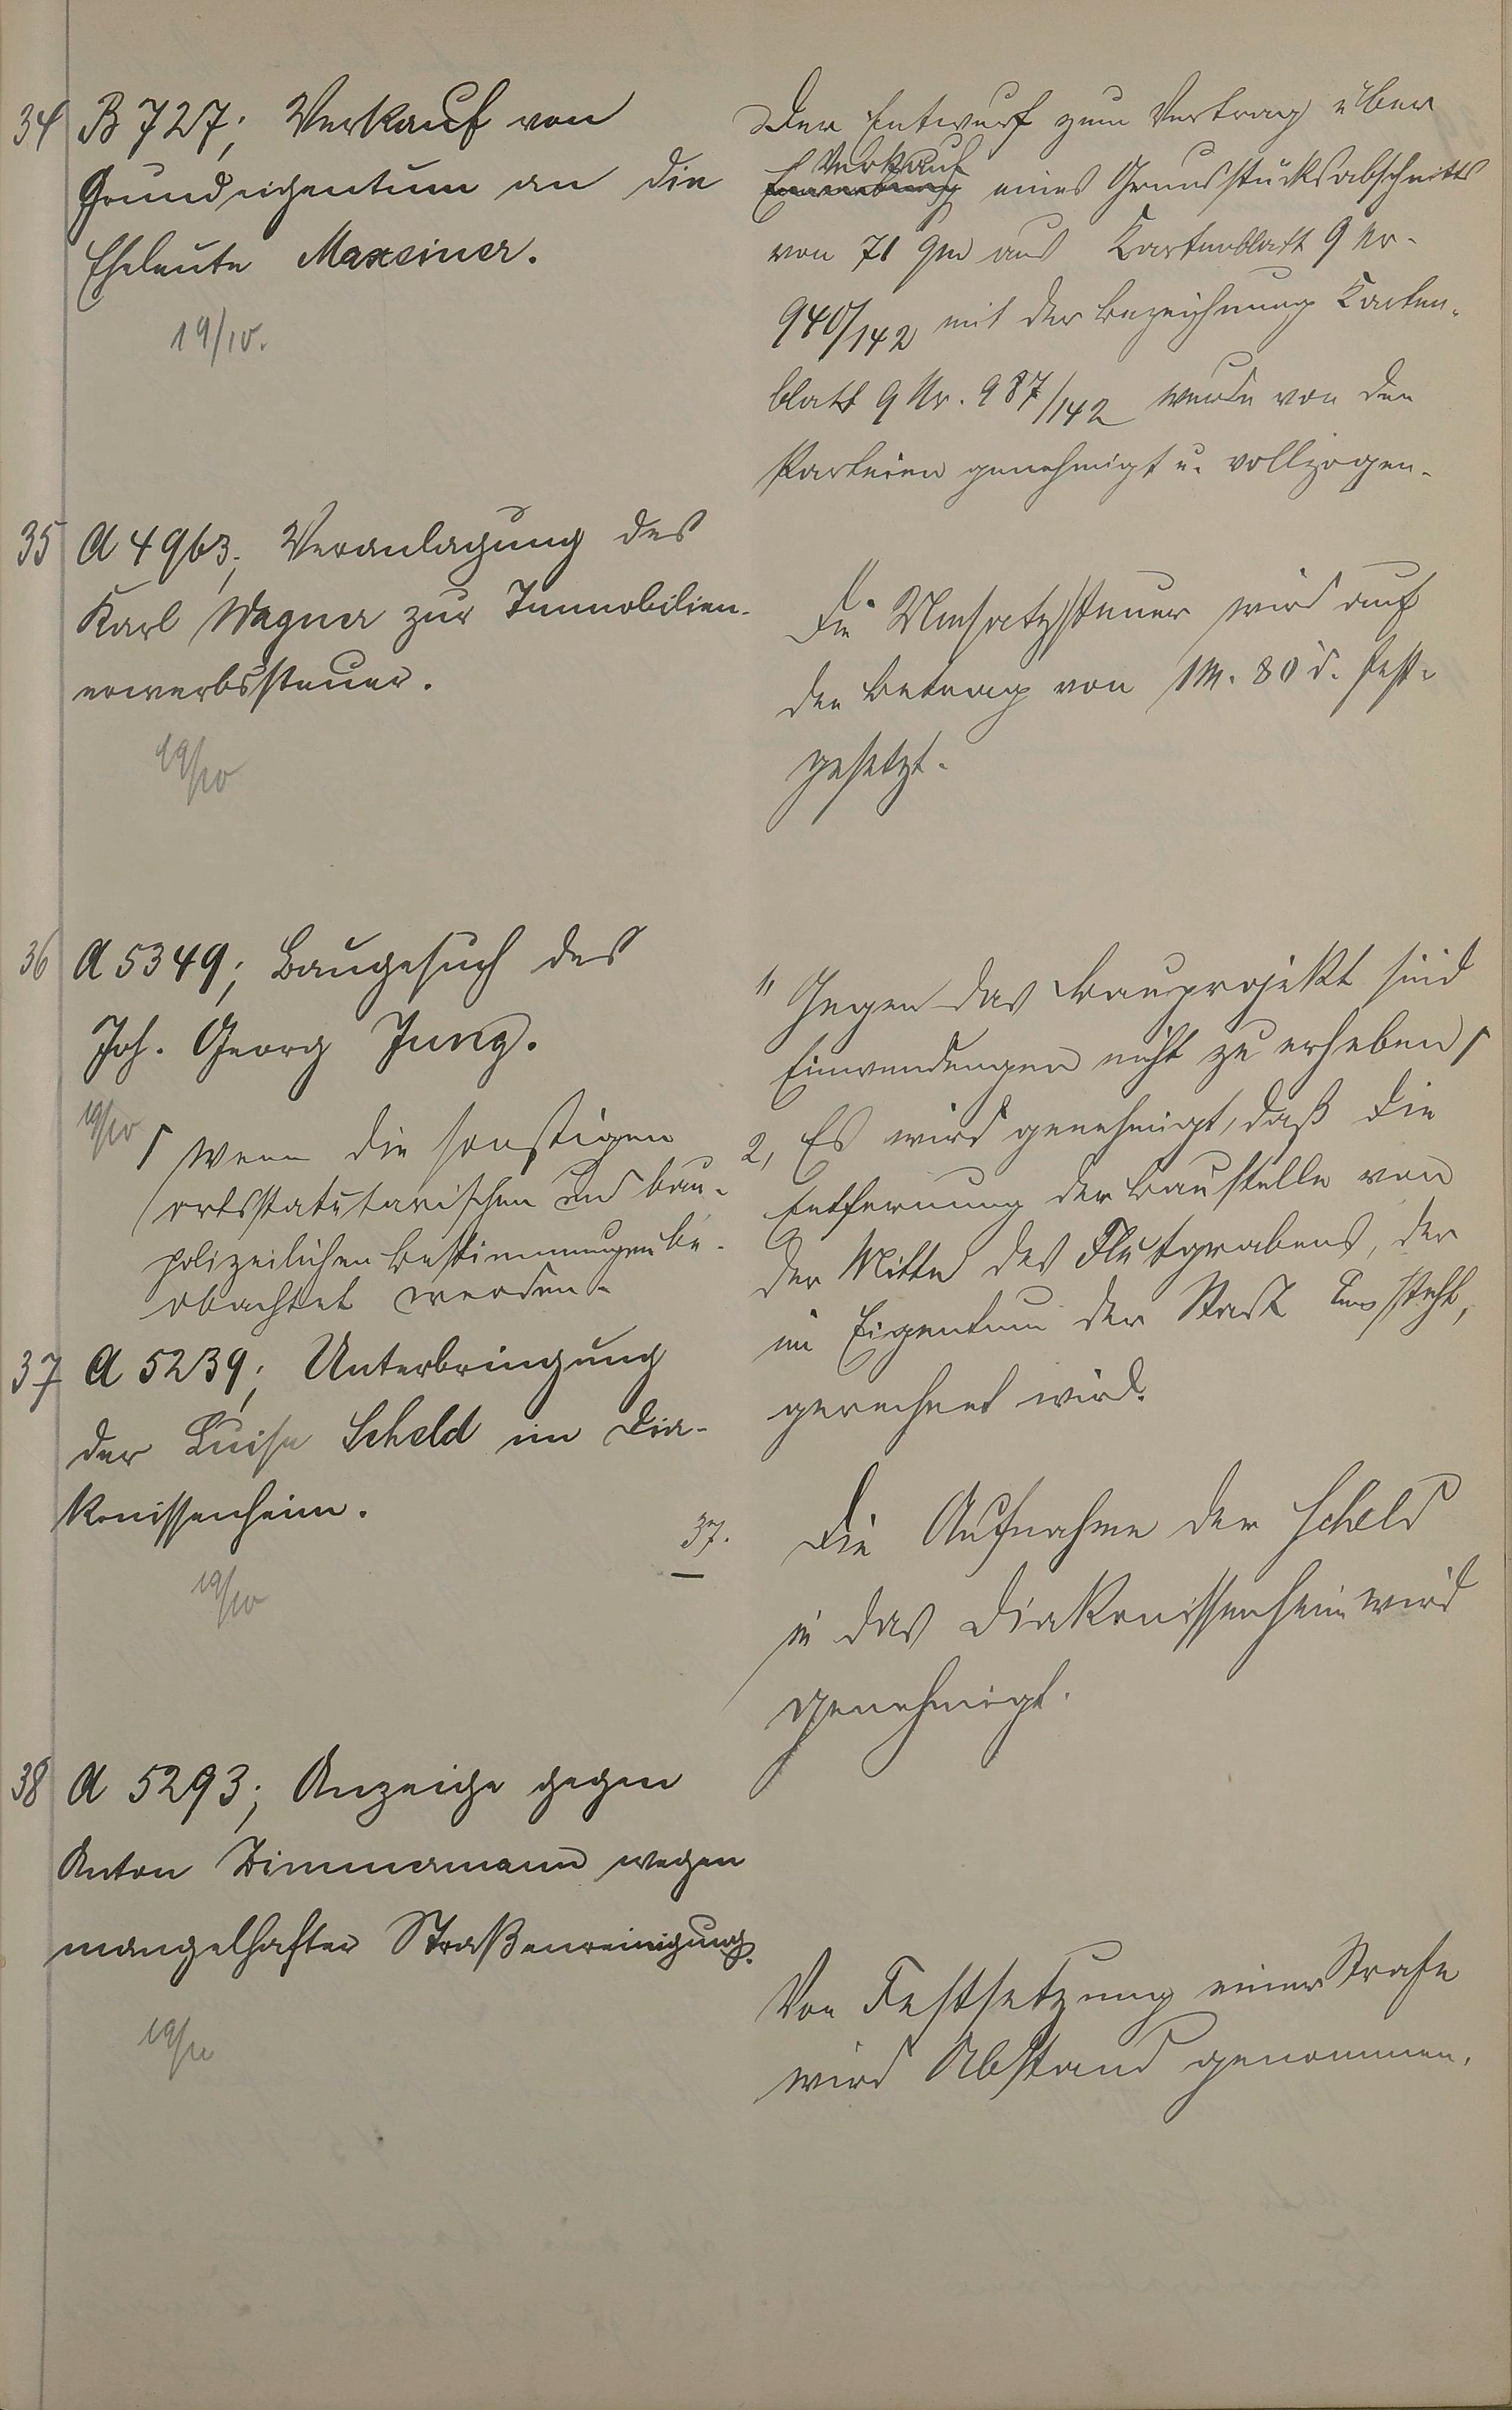 34 B 727; Verkauf von
Grundeigentum an die
Eheleute Maxeiner.
19/10.
Der Entwurf zum Vertrag über
Verkauf
eines Grundstücksabschnitts
von 71 qm aus Kartenblatt 9 No.
940/142 mit der Bezeichnung Karten-
blatt 9 Nr. 987/142 wurde von den
Parteien genehmigt u. vollzogen.
35 A 4963; Veranlagung des
Karl Wagner zur Immobilien-
erwerbssteuer.
19/10
Die Umsatzsteuer wird auf
den Betrag von 1 M. 80 d. fest-
gesetzt.
36 A 5349; Baugesuch des
Joh. Georg Jung.
19/10
Γ wenn die sonstigen
ortsstatutarischen und bau-
polizeilichen Bestimmungen be-
obachtet werden.
1, Gegen das Bauprojekt sind
Einwendungen nicht zu erheben Γ
2, Es wird genehmigt, daß die
Entfernung der Baustelle von
der Mitte des Flutgrabens, der
im Eigentum der Stadt steht,
gerechnet wird.
37 A 5239; Unterbringung
der Luise Scheld im Dia-
konissenheim.
19/10
37. Die Aufnahme der Scheld
in das Diakonissenheim wird
genehmigt.
38 A 5293; Anzeige gegen
Anton Zimmermann wegen
mangelhafter Straßenreinigung.
19/10
Von Festsetzung einer Strafe
wird Abstand genommen.